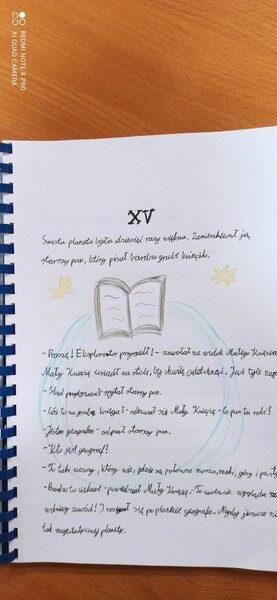 REDMI NOTE 8 PRO
AI QUAD CAMERA
XV
Szósta planeta była dziesięć razy większa. Zamieszkiwał ją
starszy pan, który pisał bardzo grube książki.
- Proszę! Eksplorator przyszedł! - zawołał na widok Małego Księcia
Mały Książę usiadł na stole, by chwilę odetchnąć. Już tyle
- Skąd przychodzisz? - spytał starszy pan.
- Co to za gruba księga? - odezwał się Mały Książę - Co pan tu robi?
- Jestem geografem - odparł starszy pan.
- Kto jest geograf?
- To taki uczony, który wie, gdzie są położone morza, rzeki, góry i
- Bardzo to ciekawe - powiedział Mały Książę. - To nareszcie wygląda
zawód! I rozejrzał się po planecie geografa. Nigdy jeszcze
tak majestatycznej planety.